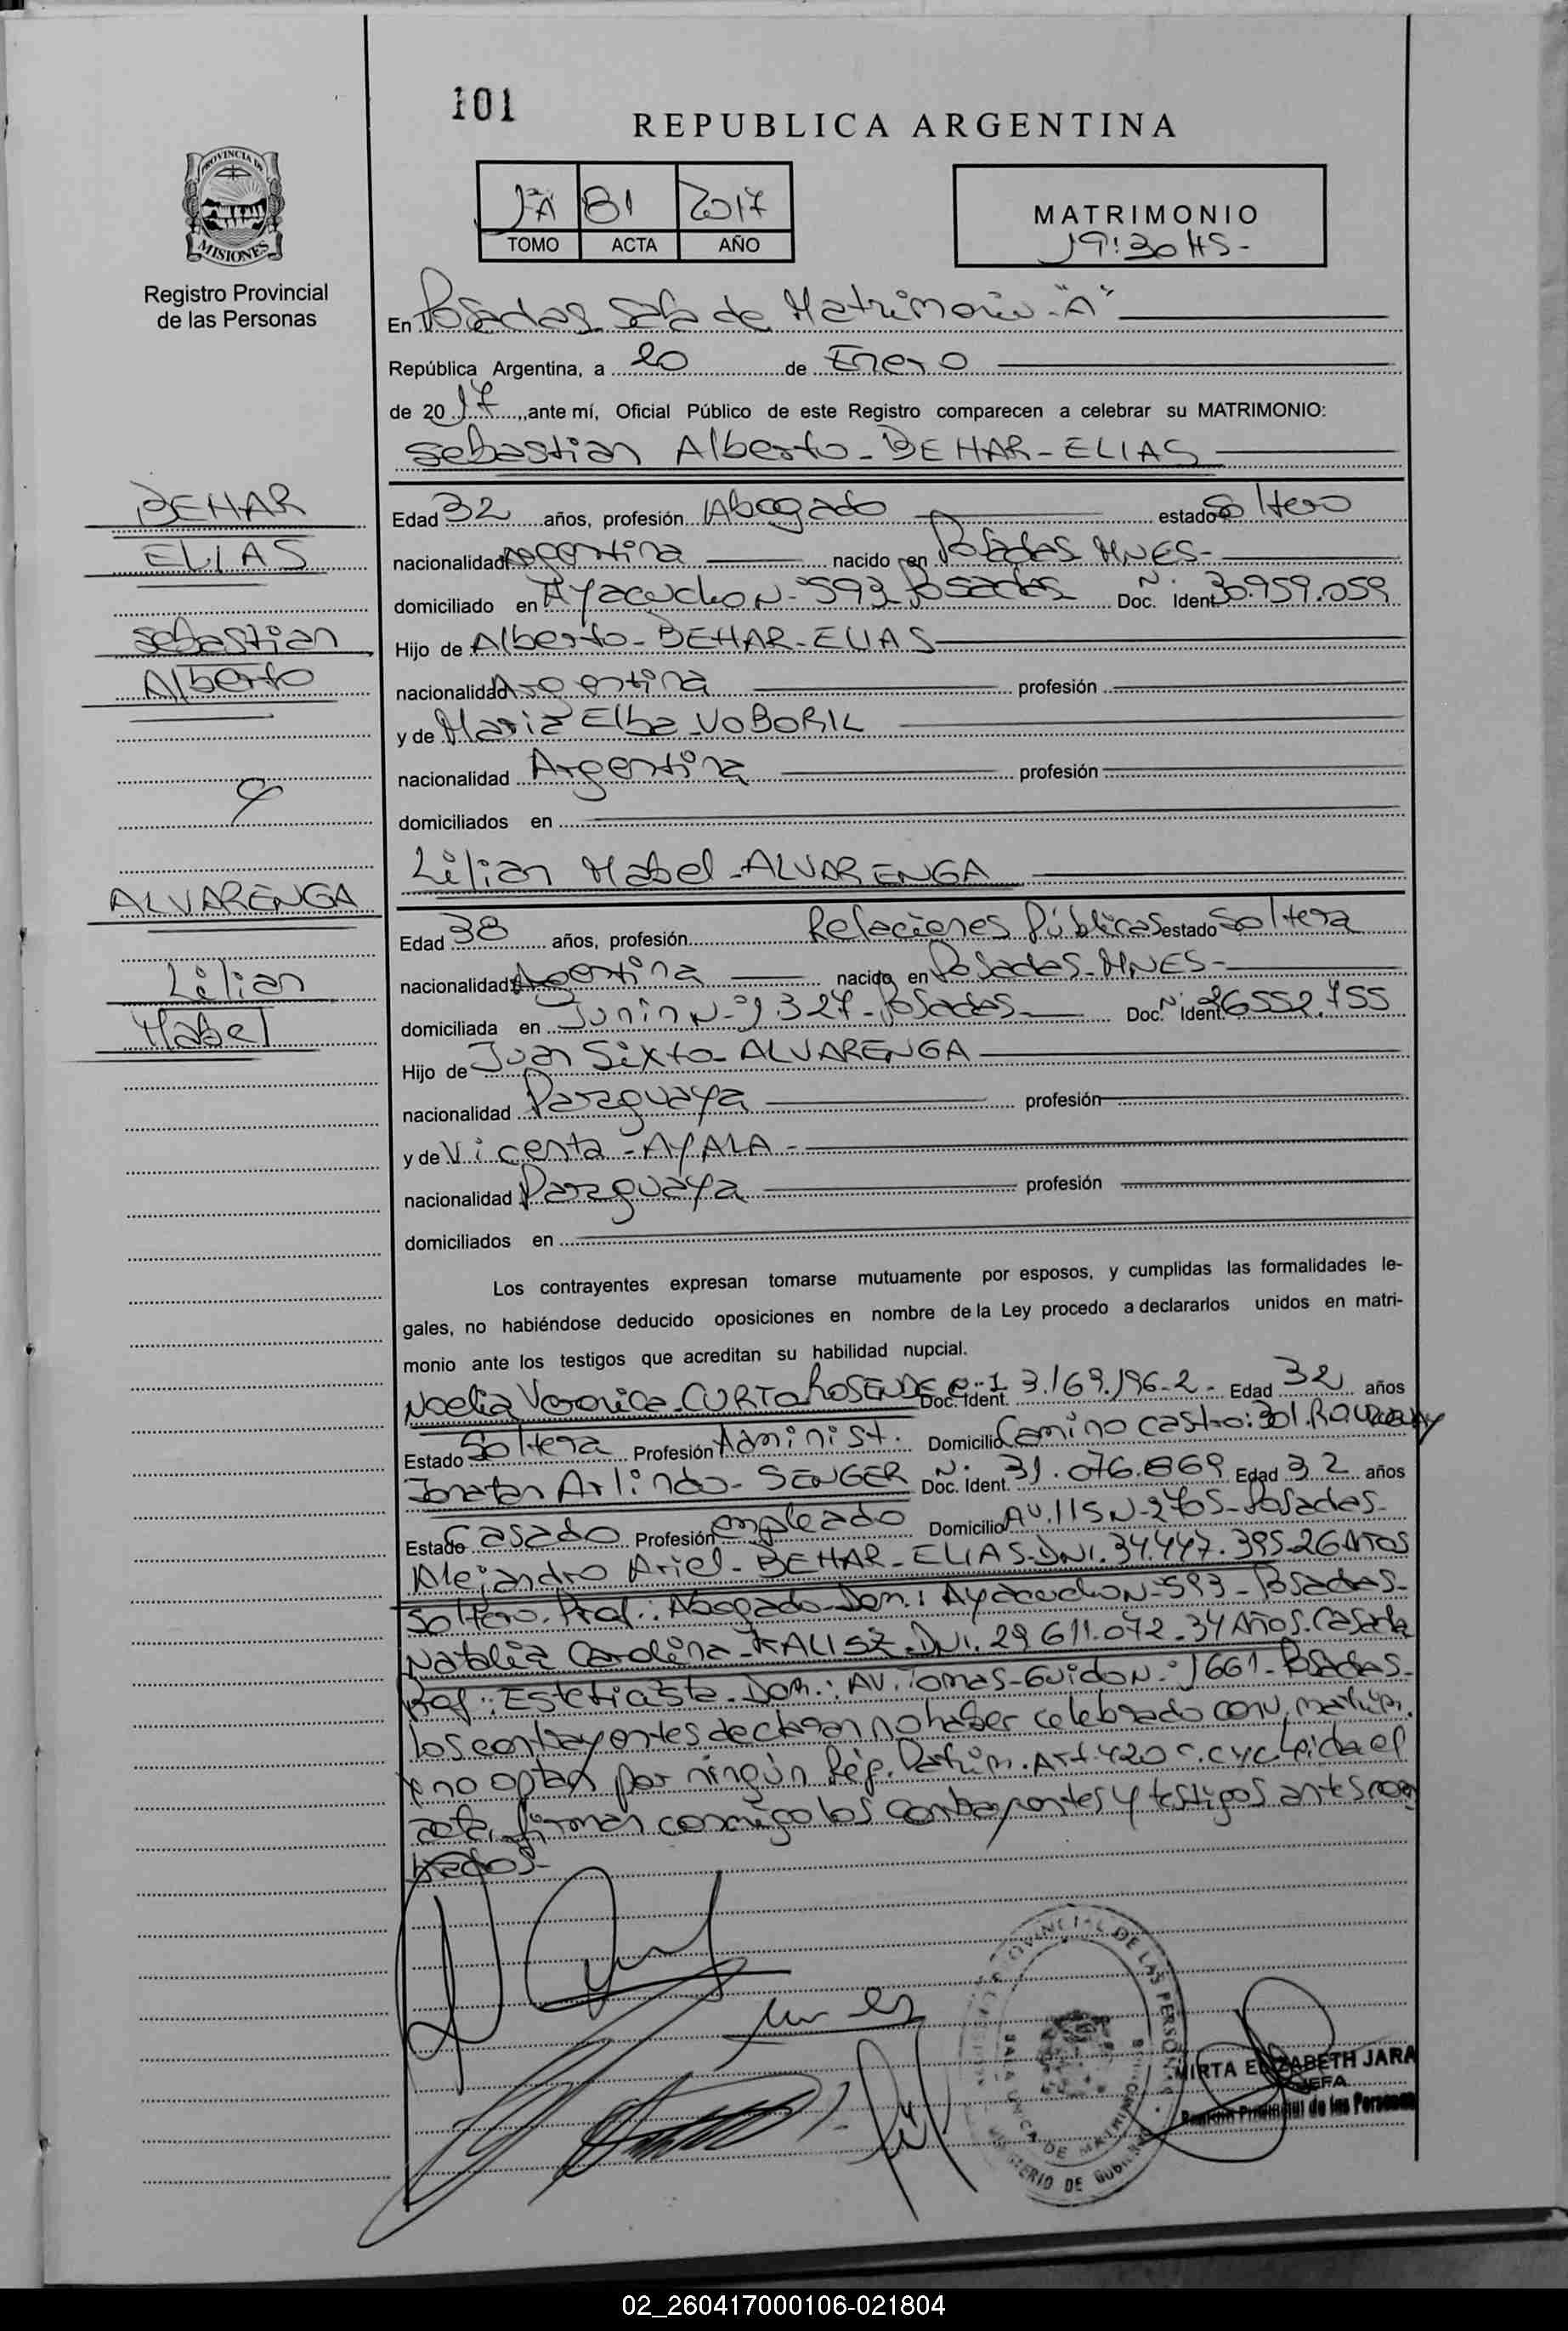 101
REPUBLICA ARGENTINA
PROVINCIA DE
MISIONES
Registro Provincial
de las Personas
81 2017
TOMO ACTA AÑO
MATRIMONIO
19:30 HS-
En Posadas Sala de Matrimonio "A"
República Argentina, a 20 de Enero
de 2017, ante mí, Oficial Público de este Registro comparecen a celebrar su MATRIMONIO:
Sebastian Alberto - BEHAR - ELIAS
BEHAR
ELIAS
Sebastian
Alberto
Edad 32 años, profesión Abogado estado Soltero
nacionalidad Argentina nacido en Posadas MNES-
domiciliado en Ayacucho Nº 593 Posadas Doc. Ident. Nº 30.959.059
Hijo de Alberto - BEHAR - ELIAS
nacionalidad Argentina profesión
y de Maria Elba VOBORIL
nacionalidad Argentina profesión
domiciliados en
Lilian Mabel - ALVARENGA
ALVARENGA
Lilian
Mabel
Edad 38 años, profesión Relaciones Públicas estado Soltera
nacionalidad Argentina nacido en Posadas - MNES-
domiciliada en Junin Nº 1327 - Posadas Doc. Ident. Nº 26552.755
Hijo de Juan Sixto - ALVARENGA
nacionalidad Paraguaya profesión
y de Vicenta - AYALA -
nacionalidad Paraguaya profesión
domiciliados en
Los contrayentes expresan tomarse mutuamente por esposos, y cumplidas las formalidades le-
gales, no habiéndose deducido oposiciones en nombre de la Ley procedo a declararlos unidos en matri-
monio ante los testigos que acreditan su habilidad nupcial.
Noelia Veronica - CURTO ROSENDE Doc. Ident. C.I 3.169.196-2 - Edad 32 años
Estado Soltera Profesión Administ. Domicilio Camino Castro: 301.
Jonatan Arlindo - SENGER Doc. Ident. Nº 31.076.869 Edad 32 años
Estado Casado Profesión empleado Domicilio AV. 115 Nº 2705 - Posadas-
Alejandro Ariel - BEHAR - ELIAS - DNI. 34.447.395 - 26 Años
Soltero. Prof.: Abogado - Dom.: Ayacucho Nº 593 - Posadas-
Natalia Carolina - KALISZ - DNI. 29 611.072 - 34 Años. Casada
Prof.: Esteticiste - Dom.: AV. Tomas - Guido Nº 1661 - Posadas-
los contrayentes declaran no haber celebrado conv. matrim.
y no optan por ningún Rég. Patrim. Art. 420 C.CyC. Leida el
acta, firman conmigo los contrayentes y testigos antes nom
brados-
PROVINCIAL DE LAS PERSONAS
SALA UNICA DE MATRIMONIOS
MINISTERIO DE GOBIERNO
MIRTA ELIZABETH JARA
JEFA
Provincial de las Personas
02_260417000106-021804